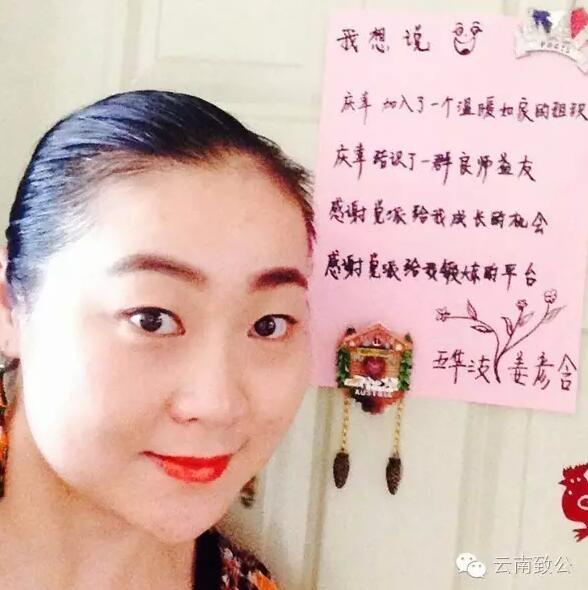 我想说
庆幸加入了一个温暖如家的组织
庆幸结识了一群良师益友
感谢党派给我成长的机会
感谢党派给我锻炼的平台
五华渋 姜彦含
PARIS
云南致公